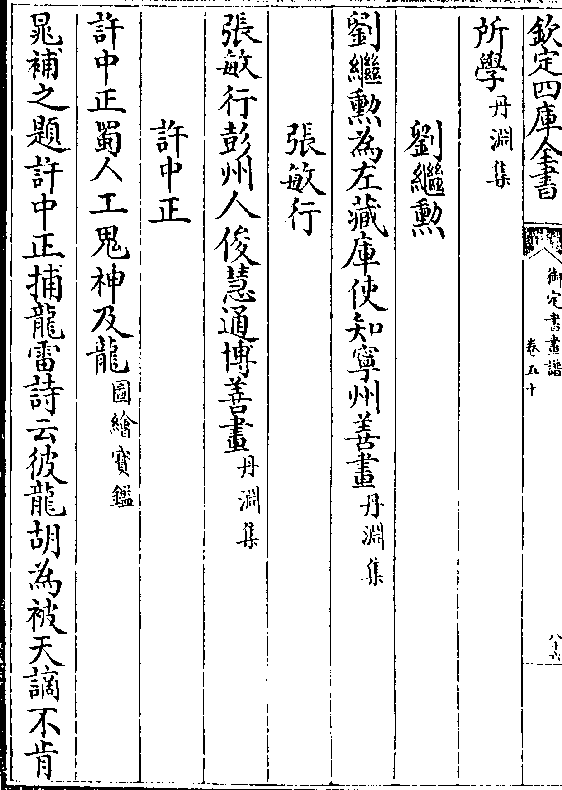 欽定四庫全書
御定書畫譜
卷五十
八十六
所學丹淵集
劉繼勲
劉繼勲為左藏庫使知寧州善畫丹淵集
張敏行
張敏行彭州人俊慧通博善畫丹淵集
許中正
許中正蜀人工鬼神及龍圖繪寳鑑
晁補之題許中正捕龍雷詩云彼龍胡為被天謫不肯